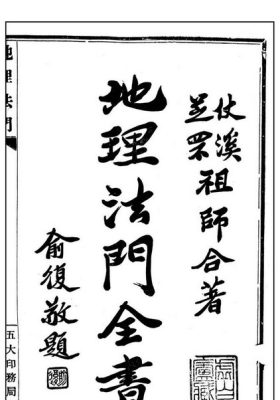 仗溪
芝罘祖師合著
地理法門全書
俞復敬題
地理法門
五大印務局